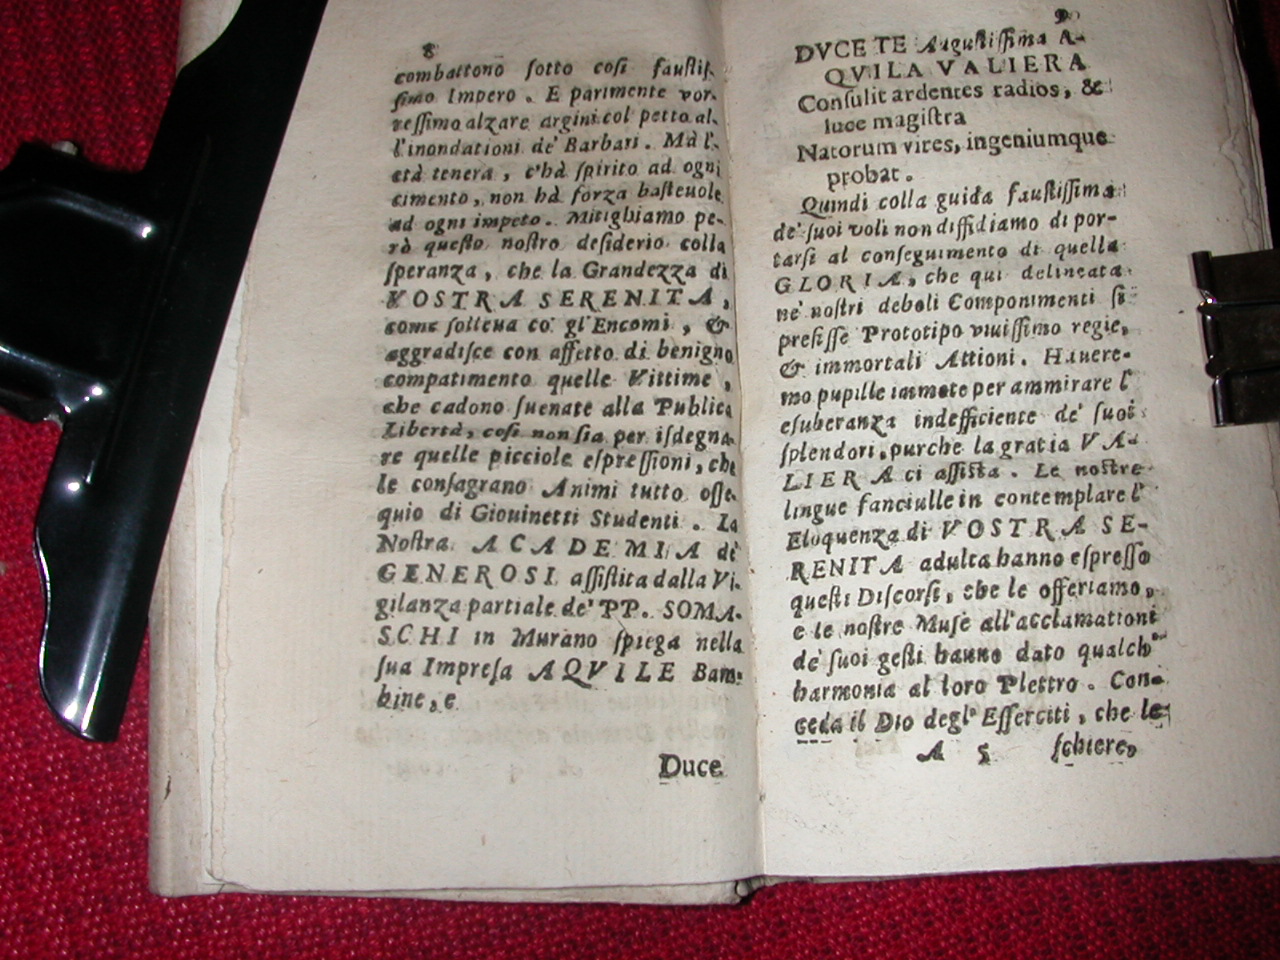 8
combattono sotto cosi faustis-
simo Impero. E parimente vor-
ressimo alzare argini col petto al-
l'inondationi de' Barbari. Mà l'-
età tenera, c'hà spirito ad ogni
cimento, non hà forza basteuole
ad ogni impeto. Mitighiamo pe-
rò questo nostro desiderio colla
speranza, che la Grandezza di
VOSTRA SERENITA,
come solleua co' gl'Encomi, &
aggradisce con affetto di benigno
compatimento quelle Vittime,
che cadono suenate alla Publica
Libertà, cosi non sia per isdegna-
re quelle picciole espressioni, che
le consagrano Animi tutto osse-
quio di Giouinetti Studenti. La
Nostra ACADEMIA de'
GENEROSI assistita dalla Vi-
gilanza partiale de' PP. SOMA-
SCHI in Murano spiega nella
sua Impresa AQVILE Bam-
bine, e
Duce
9
DVCE TE Augustissima A-
QVILA VALIERA
Consulit ardentes radios, &
luce magistra
Natorum vires, ingeniumque
probat.
Quindi colla guida faustissima
de' suoi voli non diffidiamo di por-
tarsi al conseguimento di quella
GLORIA, che qui delineata
ne' nostri deboli Componimenti si
prefisse Prototipo viuissimo regie,
& immortali Attioni. Hauere-
mo pupille immote per ammirare l'
esuberanza indefficiente de' suoi
splendori, purche la gratia VA-
LIERA ci assista. Le nostre
lingue fanciulle in contemplare l'
Eloquenza di VOSTRA SE-
RENITA adulta hanno espresso
questi Discorsi, che le offeriamo,
e le nostre Muse all'acclamationi
de' suoi gesti hanno dato qualch'
harmonia al loro Plettro. Con-
ceda il Dio degl'Esserciti, che le
A 5 schiere,